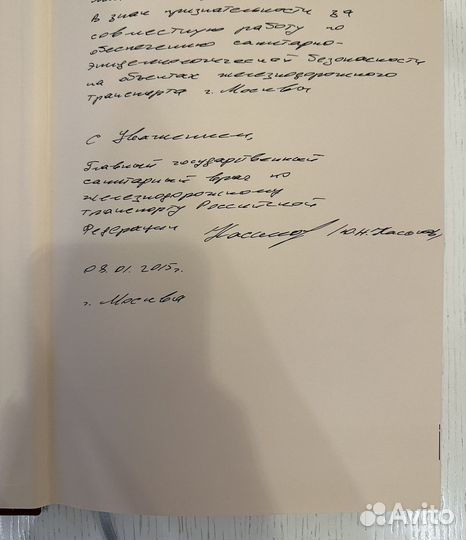 В знак признательности за
совместную работу по
обеспечению санитарно-
эпидемиологической безопасности
на объектах железнодорожного
транспорта г. Москвы
С Уважением,
Главный государственный
санитарный врач по
железнодорожному
транспорту Российской
Федерации /Ю.Н.
08.01.2015г.
г. Москва
Avito